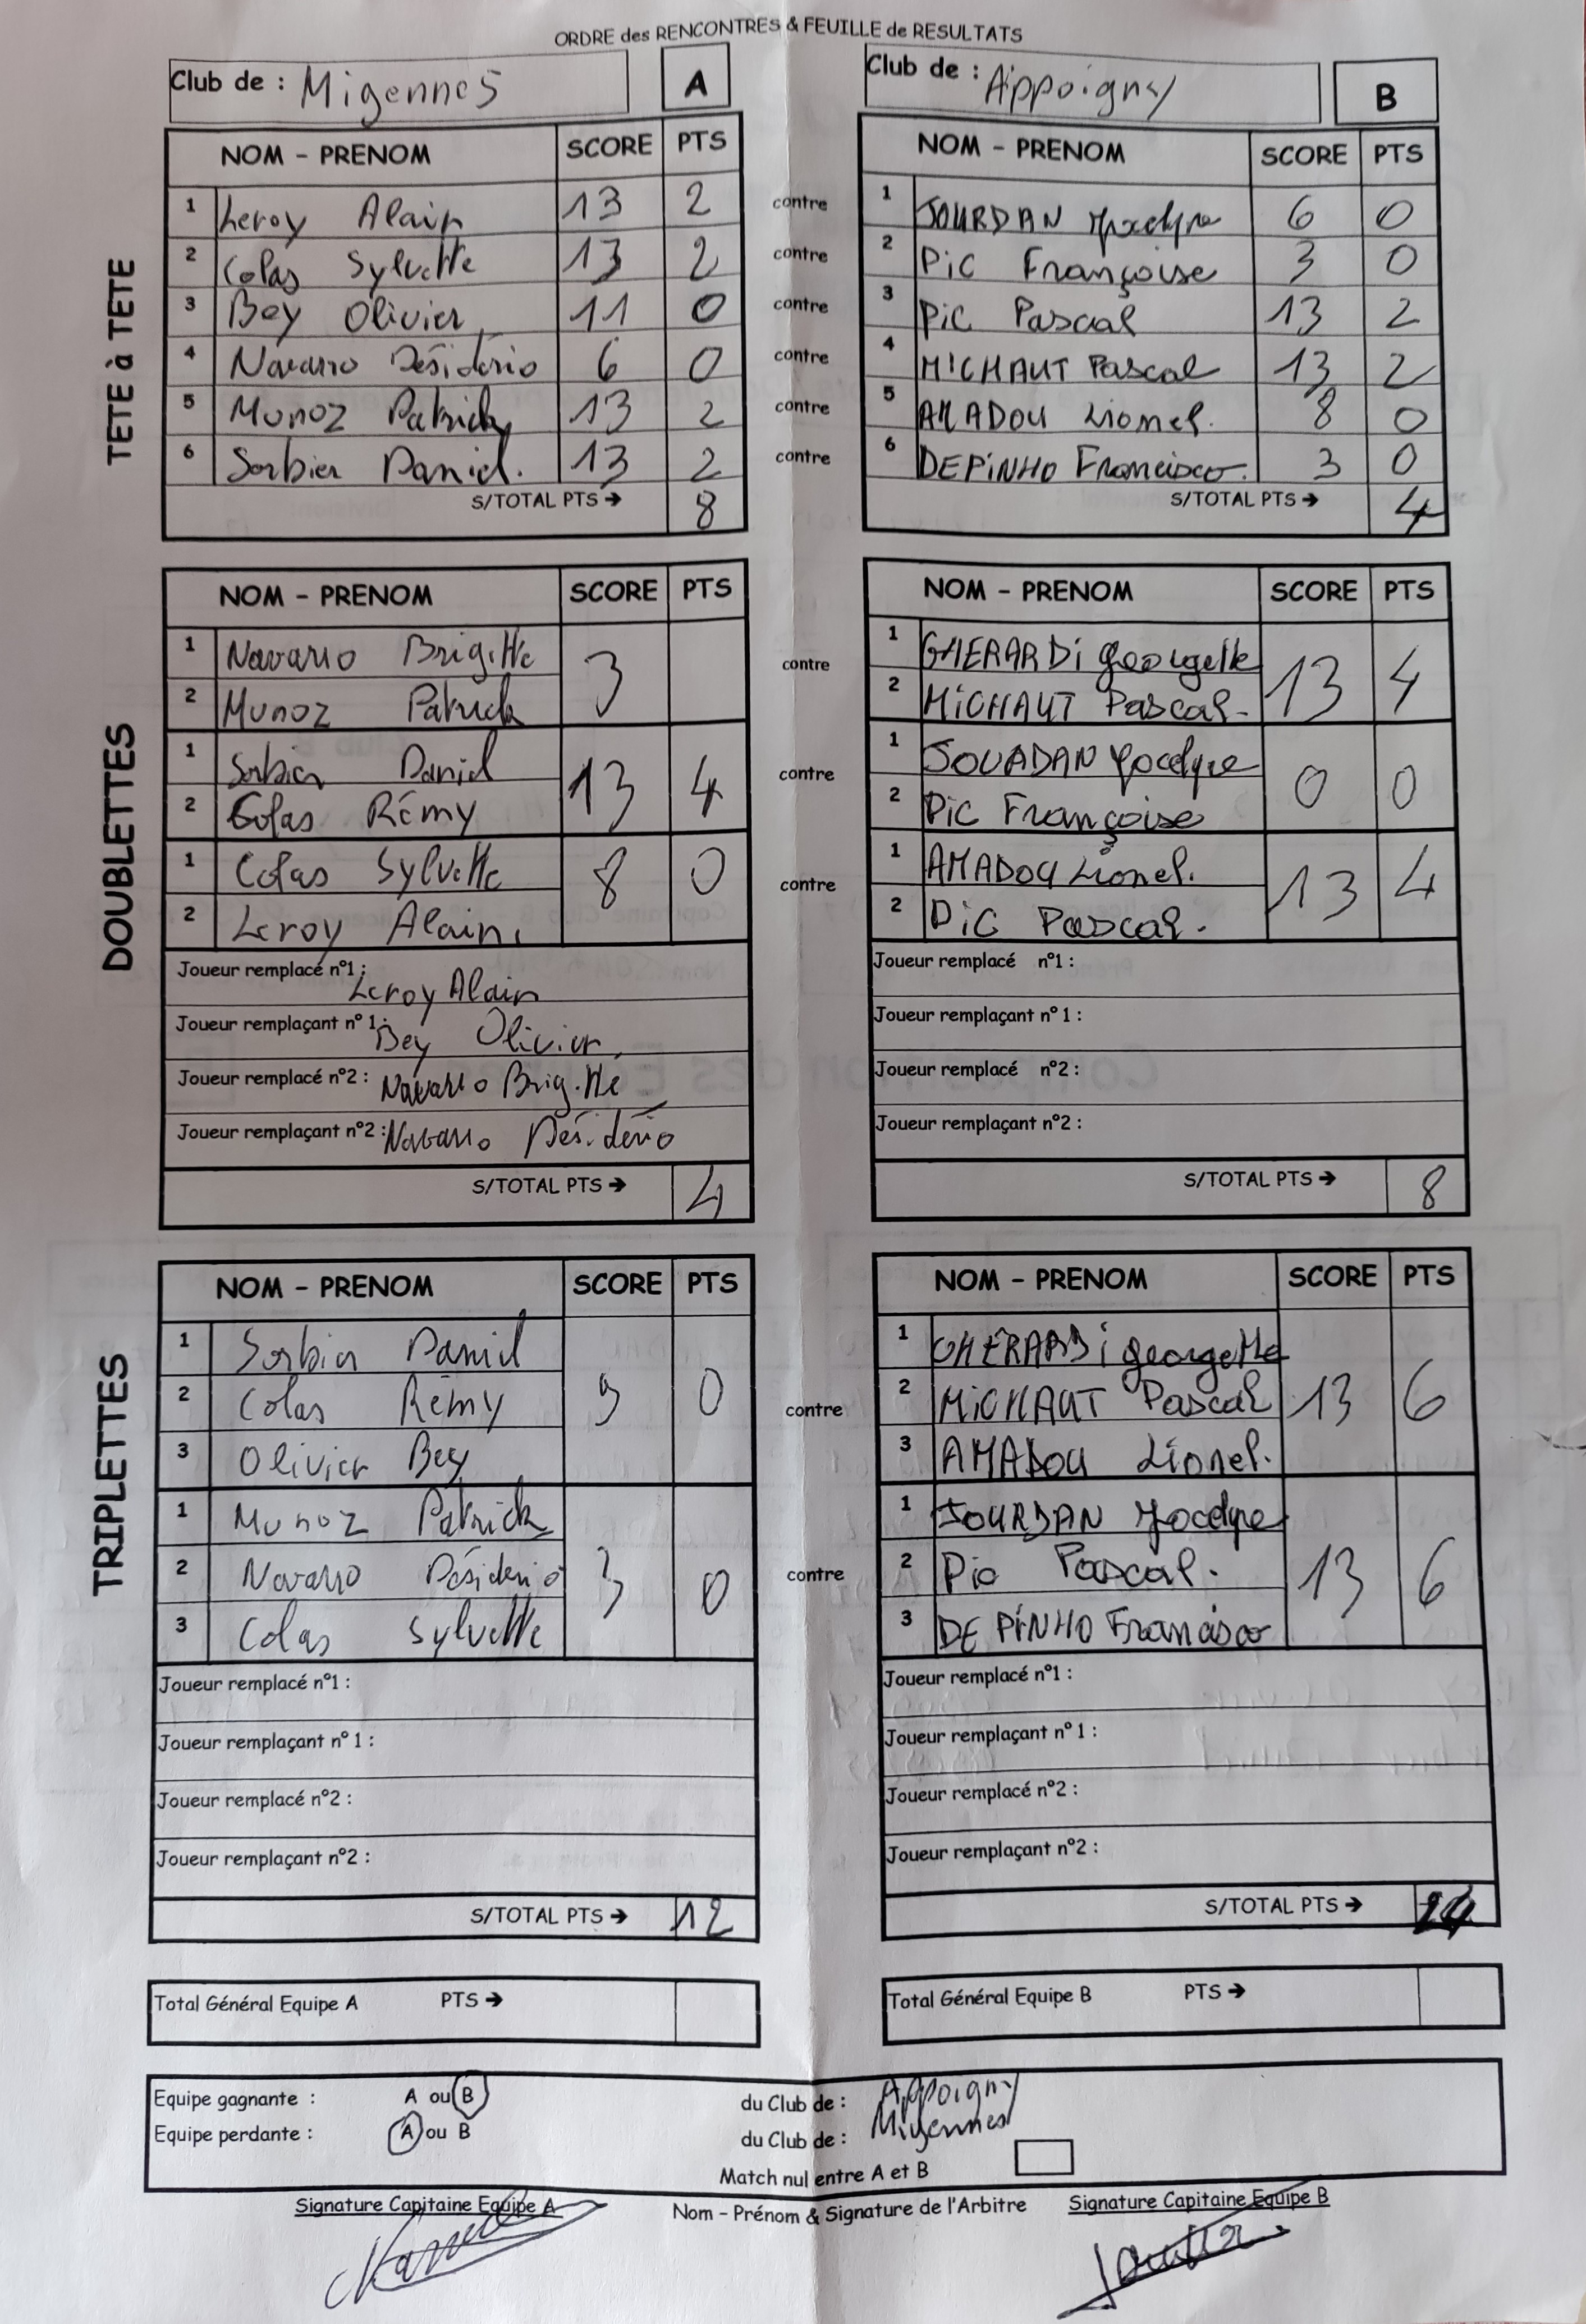 ORDRE des RENCONTRES & FEUILLE de RESULTATS
Club de : Migennes A
Club de : Appoigny B
TETE à TETE
NOM - PRENOM SCORE PTS NOM - PRENOM SCORE PTS
1 Leroy Alain 13 2 contre 1 JOURDAN Jocelyne 6 0
2 Colas Sylvette 13 2 contre 2 Pic Françoise 3 0
3 Bey Olivier 11 0 contre 3 Pic Pascal 13 2
4 Navarro Désidério 6 0 contre 4 MICHAUT Pascal 13 2
5 Munoz Patrick 13 2 contre 5 AMADOU Lionel. 8 0
6 Sorbier Daniel. 13 2 contre 6 DEPINHO Francisco. 3 0
S/TOTAL PTS → 8 S/TOTAL PTS → 4
DOUBLETTES
NOM - PRENOM SCORE PTS NOM - PRENOM SCORE PTS
1 Navarro Brigitte 3 contre 1 GHERARDi georgette 13 4
2 Munoz Patrick 2 MiCHAUT Pascal-
1 Sorbier Daniel 13 4 contre 1 JOUADAN Jocelyne 0 0
2 Colas Rémy 2 Pic Françoise
1 Colas Sylvette 8 0 contre 1 AMADOU Lionel. 13 4
2 Leroy Alain. 2 Pic Pascal.
Joueur remplacé n°1 : Leroy Alain Joueur remplacé n°1 :
Joueur remplaçant n° 1 : Bey Olivier Joueur remplaçant n° 1 :
Joueur remplacé n°2 : Navarro Brigitte Joueur remplacé n°2 :
Joueur remplaçant n°2 : Navarro Désidério Joueur remplaçant n°2 :
S/TOTAL PTS → 4 S/TOTAL PTS → 8
TRIPLETTES
NOM - PRENOM SCORE PTS NOM - PRENOM SCORE PTS
1 Sorbier Daniel 1 GHERARDi georgette
2 Colas Rémy 0 contre 2 MiCHAUT Pascal 13 6
3 Olivier Bey 3 AMADOU Lionel.
1 Munoz Patrick 1 JOURDAN Jocelyne
2 Navarro Désidério 3 0 contre 2 Pic Pascal. 13 6
3 Colas Sylvette 3 DE PINHO Francisco
Joueur remplacé n°1 : Joueur remplacé n°1 :
Joueur remplaçant n° 1 : Joueur remplaçant n° 1 :
Joueur remplacé n°2 : Joueur remplacé n°2 :
Joueur remplaçant n°2 : Joueur remplaçant n°2 :
S/TOTAL PTS → 12 S/TOTAL PTS → 24
Total Général Equipe A PTS → Total Général Equipe B PTS →
Equipe gagnante : A ou B du Club de : Appoigny
Equipe perdante : A ou B du Club de : Migennes
Match nul entre A et B
Signature Capitaine Equipe A Nom - Prénom & Signature de l'Arbitre Signature Capitaine Equipe B